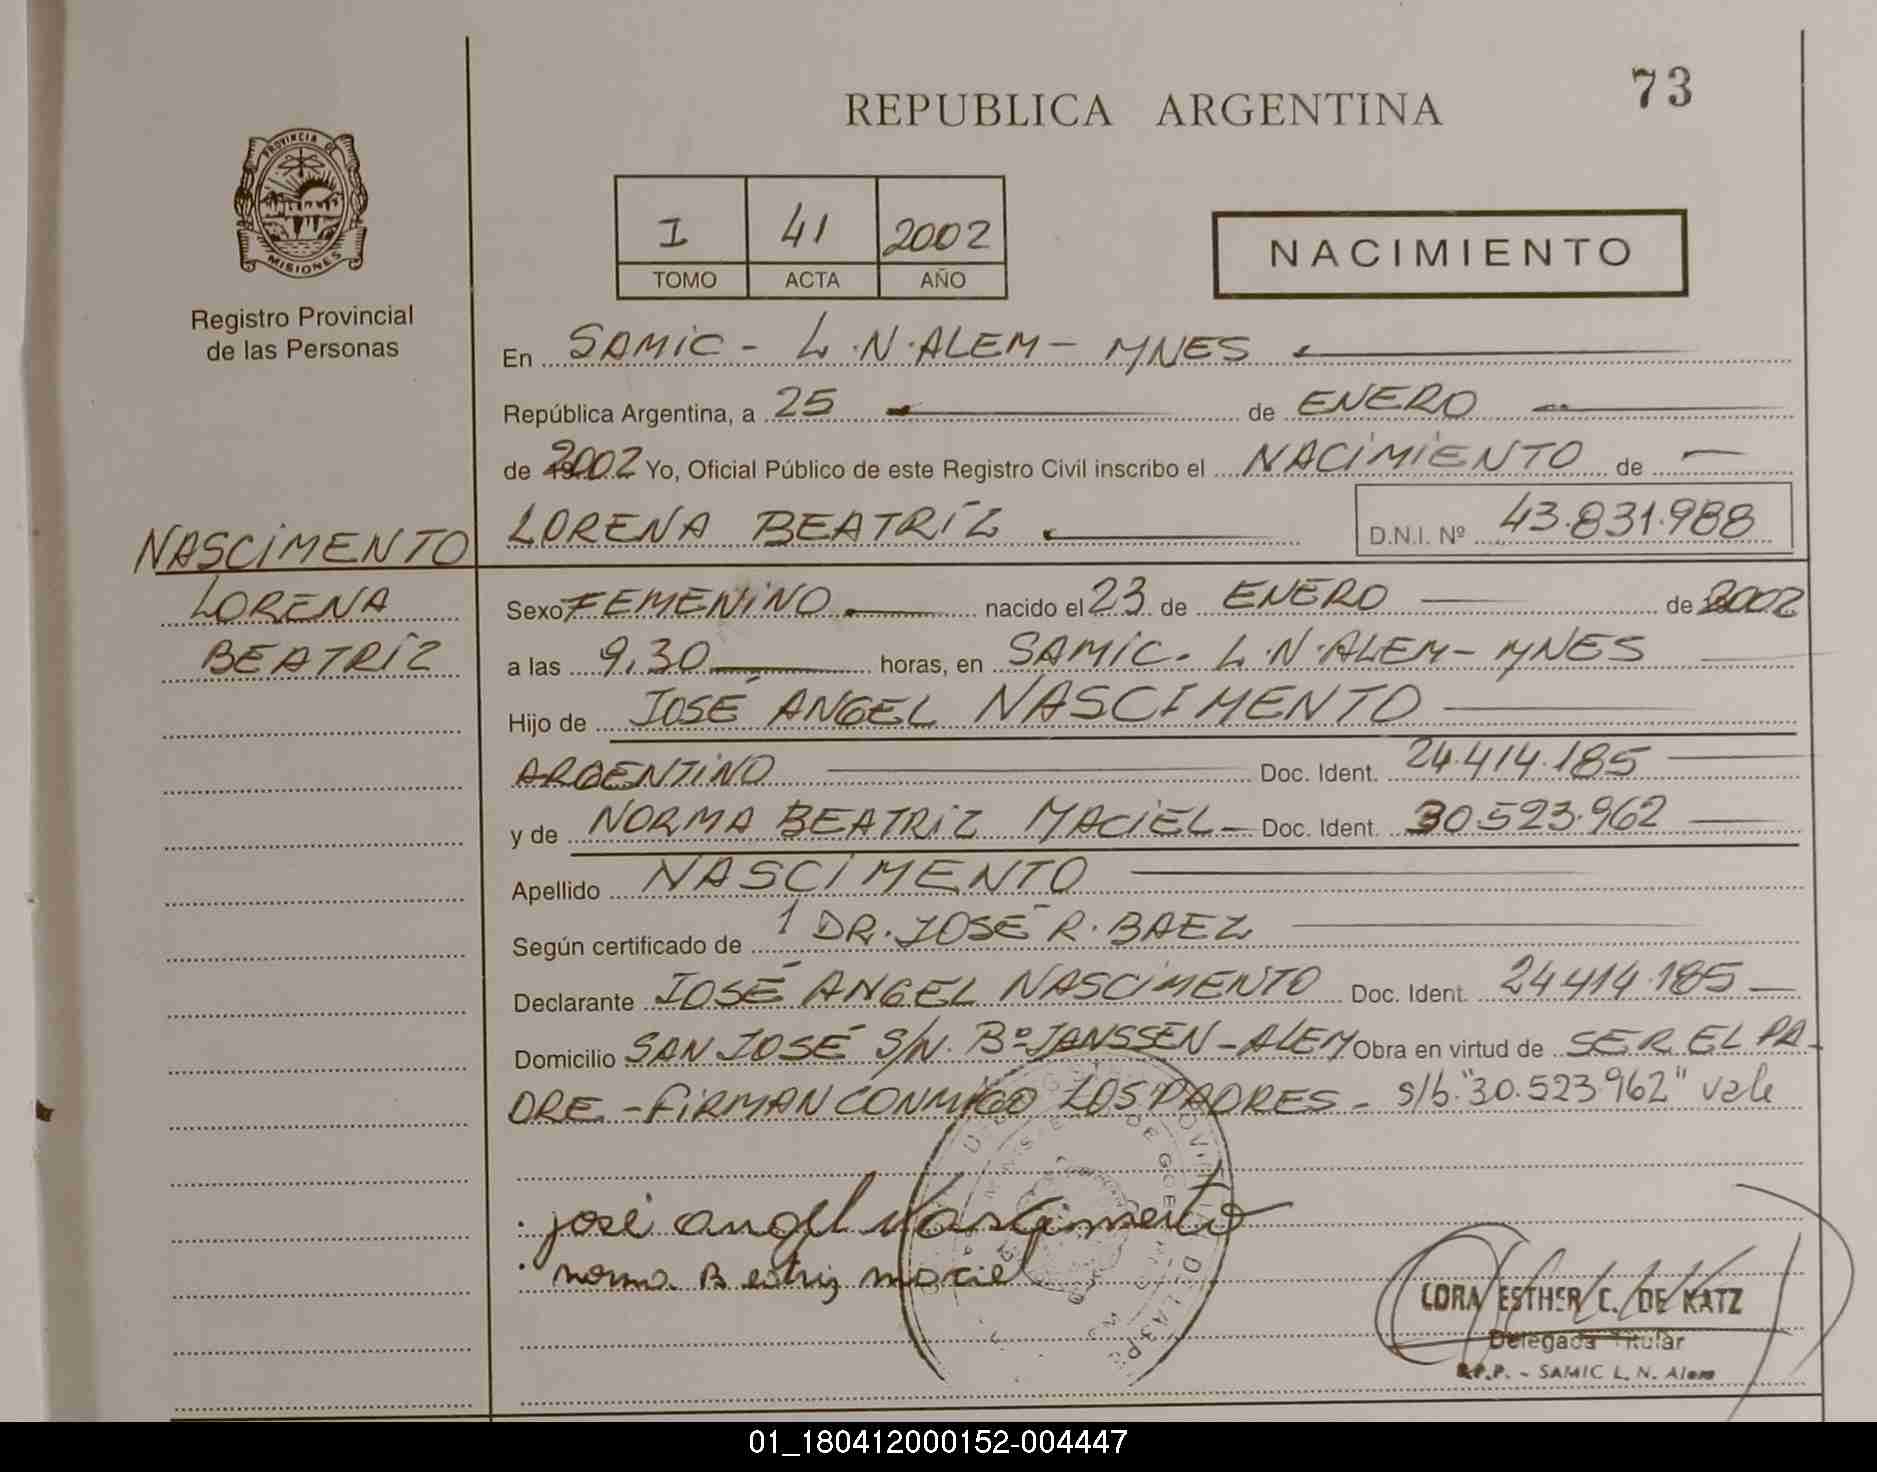 73
REPUBLICA ARGENTINA
PROVINCIA DE
MISIONES
Registro Provincial
de las Personas
I 41 2002
TOMO ACTA AÑO
NACIMIENTO
En SAMIC - L.N.ALEM - MNES
República Argentina, a 25 de ENERO
de 2002 Yo, Oficial Público de este Registro Civil inscribo el NACIMIENTO de
LORENA BEATRÍZ D.N.I. Nº 43.831.988
NASCIMENTO
LORENA
BEATRÍZ
Sexo FEMENINO nacido el 23 de ENERO de 2002
a las 9,30 horas, en SAMIC - L.N.ALEM - MNES
Hijo de JOSÉ ANGEL NASCIMENTO
ARGENTINO Doc. Ident. 24.414.185
y de NORMA BEATRIZ MACIEL - Doc. Ident. 30.523.962
Apellido NASCIMENTO
Según certificado de DR. JOSÉ R. BAEZ
Declarante JOSÉ ANGEL NASCIMENTO Doc. Ident. 24.414.185
Domicilio SAN JOSÉ S/N. Bº JANSSEN - ALEM Obra en virtud de SER EL PA-
DRE. - FIRMAN CONMIGO LOS PADRES - s/b. "30.523962" vale
josé angel Nascimento
norma Beatriz maciel
LORA ESTHER C. DE KATZ
Delegada Titular
R.P.P. - SAMIC L. N. Alem
01_180412000152-004447